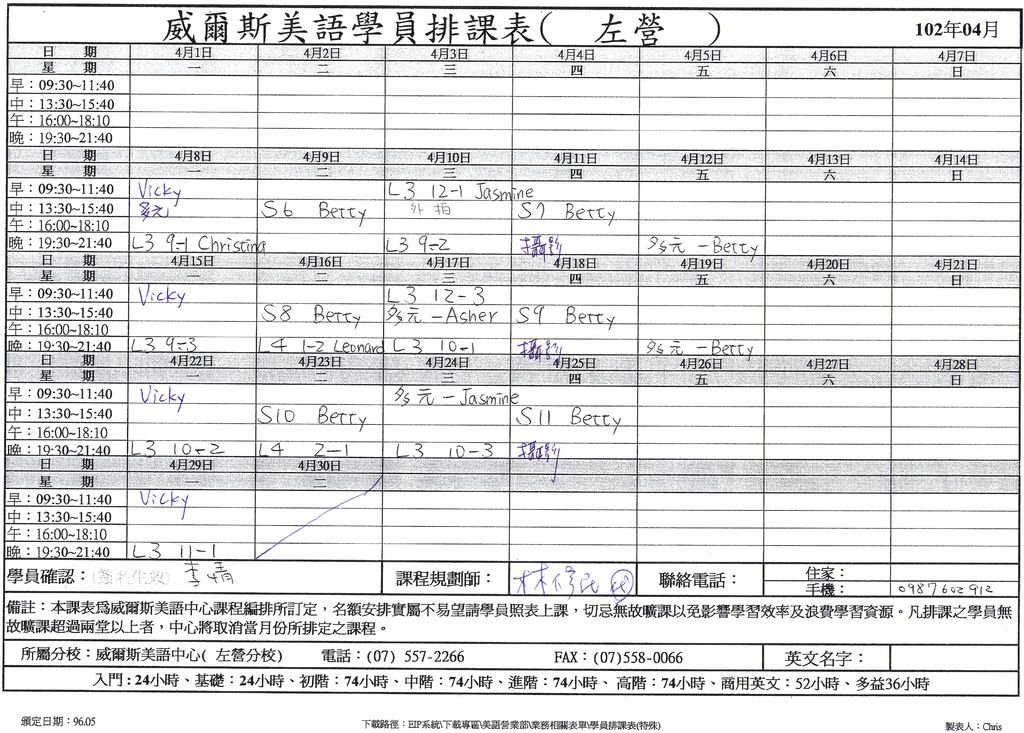 威爾斯美語學員排課表( 左營 ) 102年04月
日 期 4月1日 4月2日 4月3日 4月4日 4月5日 4月6日 4月7日
星 期 一 二 三 四 五 六 日
早：09:30~11:40
中：13:30~15:40
午：16:00~18:10
晚：19:30~21:40
日 期 4月8日 4月9日 4月10日 4月11日 4月12日 4月13日 4月14日
星 期 一 二 三 四 五 六 日
早：09:30~11:40 Vicky L3 12-1 Jasmine
中：13:30~15:40 多元 S6 Betty 外拍 S7 Betty
午：16:00~18:10
晚：19:30~21:40 L3 9-1 Christina L3 9-2 攝影 多元 -Betty
日 期 4月15日 4月16日 4月17日 4月18日 4月19日 4月20日 4月21日
星 期 一 二 三 四 五 六 日
早：09:30~11:40 Vicky L3 12-3
中：13:30~15:40 S8 Betty 多元 -Asher S9 Betty
午：16:00~18:10
晚：19:30~21:40 L3 9-3 L4 1-2 Leonard L3 10-1 攝影 多元 -Betty
日 期 4月22日 4月23日 4月24日 4月25日 4月26日 4月27日 4月28日
星 期 一 二 三 四 五 六 日
早：09:30~11:40 Vicky 多元 -Jasmine
中：13:30~15:40 S10 Betty S11 Betty
午：16:00~18:10
晚：19:30~21:40 L3 10-2 L4 2-1 L3 10-3 攝影
日 期 4月29日 4月30日
星 期 一 二
早：09:30~11:40 Vicky
中：13:30~15:40
午：16:00~18:10
晚：19:30~21:40 L3 11-1
學員確認：(簽名生效) 李靖 課程規劃師： 林修民 代 聯絡電話： 住家：
手機： 0987602912
備註：本課表為威爾斯美語中心課程編排所訂定，名額安排實屬不易望請學員照表上課，切忌無故曠課以免影響學習效率及浪費學習資源。凡排課之學員無
故曠課超過兩堂以上者，中心將取消當月份所排定之課程。
所屬分校：威爾斯美語中心( 左營分校) 電話：(07) 557-2266 FAX：(07)558-0066 英文名字：
入門：24小時、基礎：24小時、初階：74小時、中階：74小時、進階：74小時、高階：74小時、商用英文：52小時、多益36小時
頒定日期：96.05 下載路徑：EIP系統\下載專區\美語營業部\業務相關表單\學員排課表(特殊) 製表人：Chris